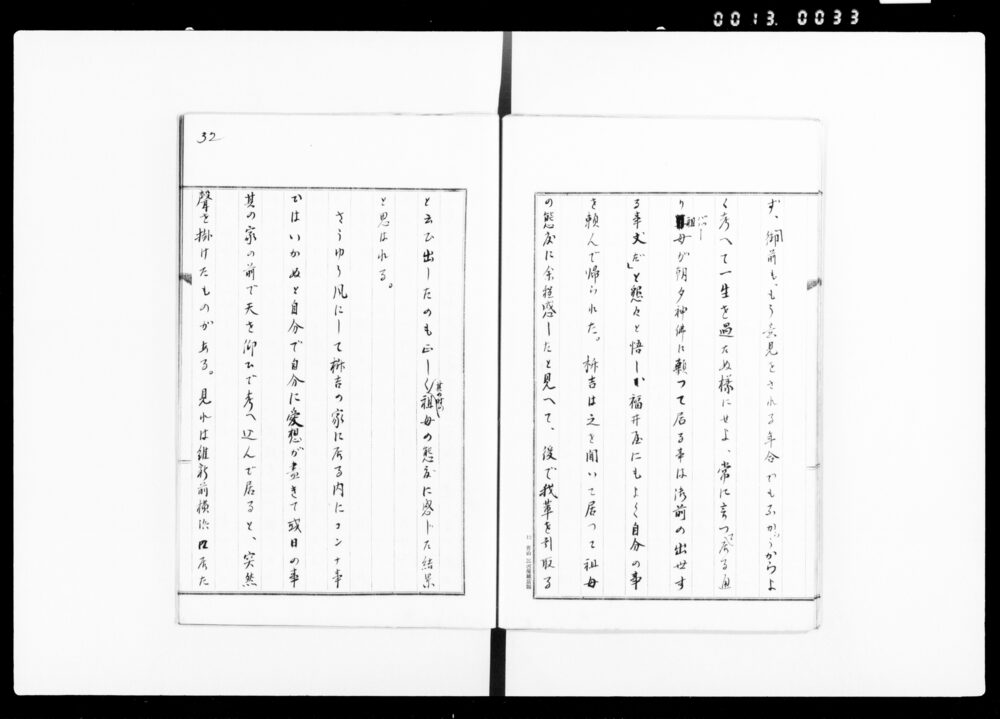 0013.0033
ず、御前も、もう意見をされる年合でもなからうからよ
く考へて一生を過たぬ様にせよ、常に言つて居る通
り祖母が朝夕神佛に願つて居る事は御前の出世す
る事丈だ」と懇々と悟し福井屋にもよく自分の事
を頼んで帰られた。桝吉は之を聞いて居つて祖母
の態度に余程感じたと見へて、後で我輩を引取る
32
と云ひ出したのも正しく其の時の祖母の態度に感じた結果
と思はれる。
さうゆう風にして桝吉の家に居る内にコンナ事
ではいかぬと自分で自分に愛想が盡きて或日の事
其の家の前で天を仰ひで考へ込んで居ると、突然
聲を掛けたものがある。見れば維新前横浜に居た